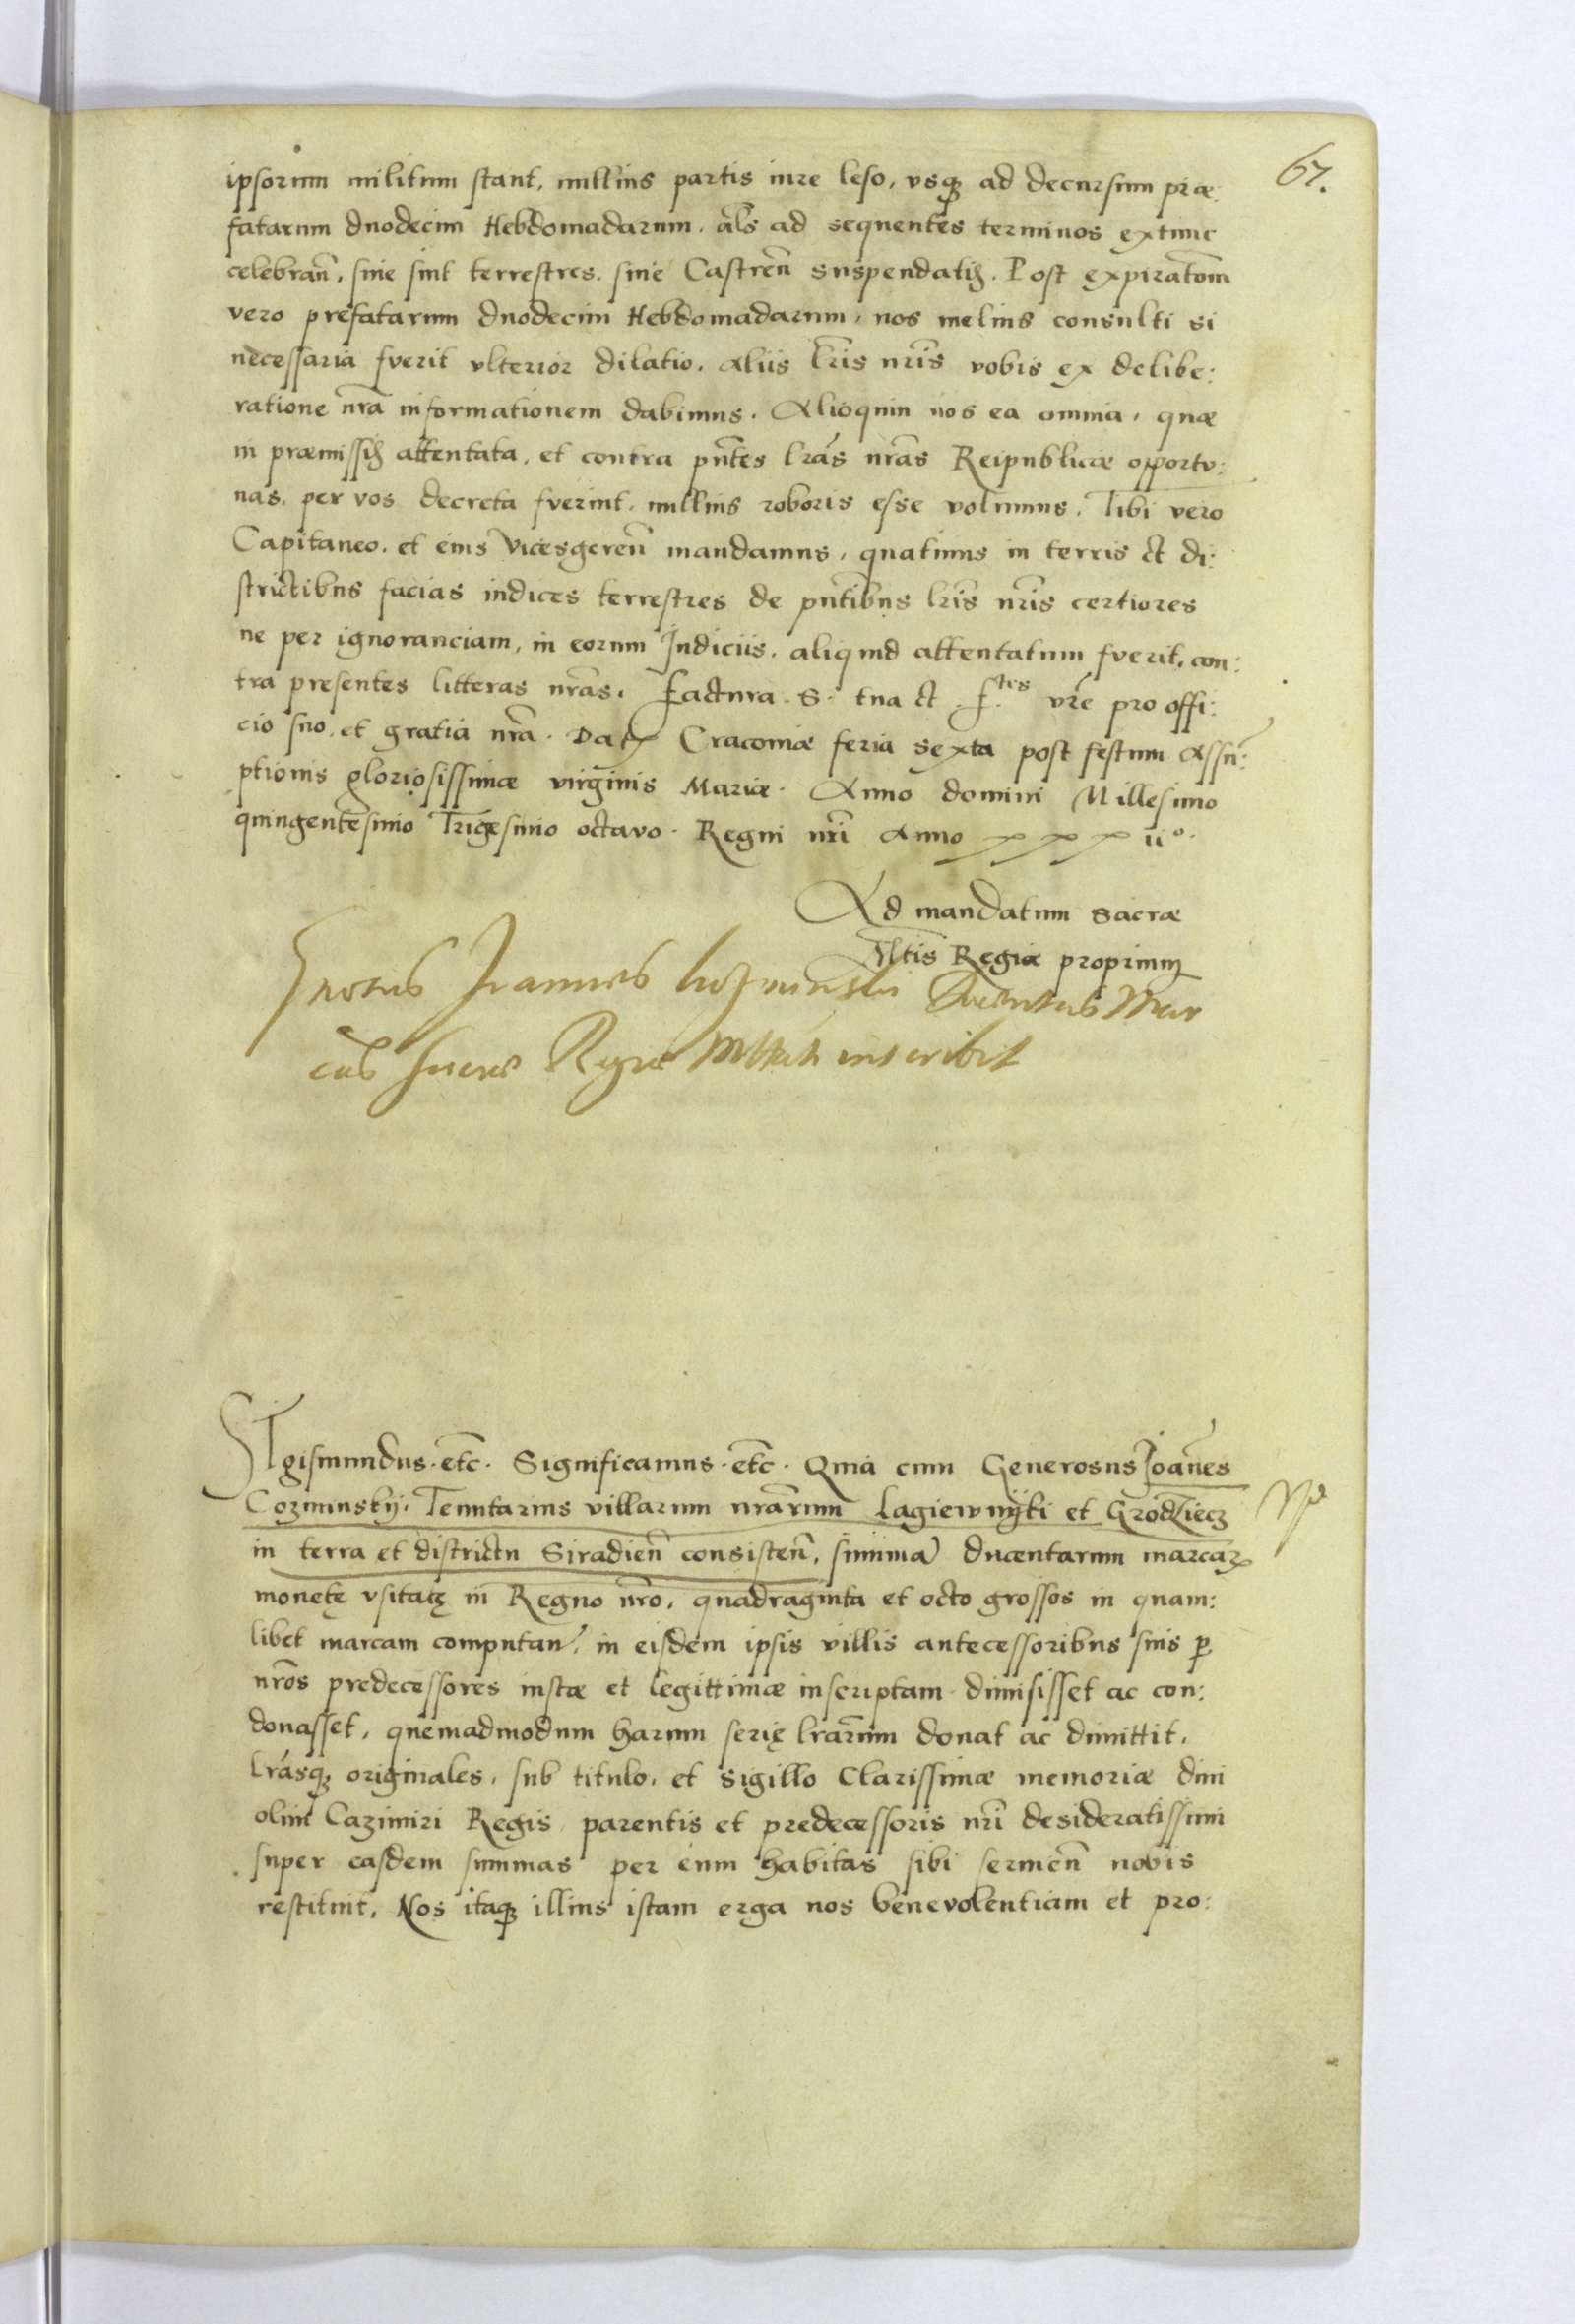 67.
ipsorum militum stant, nullius partis iure leso, vsq3 ad decursum præ:
fatarum duodecim Hebdomadarum, als̃ ad sequentes terminos extunc
celebrañ, siue sint terrestres, siue Castreñ suspendatis. Post expiratõm
vero prefatarum duodecim Hebdomadarum, nos melius consulti si
necessaria fverit vlterior dilatio, Aliis lr̃is nr̃is vobis ex delibe:
ratione nr̃a informationem dabimus. Alioquin nos ea omnia, quæ
in præmissis attentata, et contra pñtes lr̃as nr̃as Reipublicæ opportv:
nas, per vos decreta fverint, nullius roboris esse volumus. Tibi vero
Capitaneo, et eius Vicesgereñ mandamus, quatinus in terris et di:
strictibus facias iudices terrestres de pñtibus lr̃is nr̃is certiores
ne per ignoranciam, in eorum Iudiciis, aliquid attentatum fverit, con:
tra presentes litteras nr̃as. Factura S. tua et f.tes vr̃e pro offi:
cio suo, et gratia nr̃a. Dat Cracouiæ feria sexta post festum Assũ:
ptionis gloriosissimæ virginis Mariæ. Anno domini Millesimo
quingentesimo Trigesimo octavo. Regni nr̃i Anno xxxiio.
Ad mandatum sacræ
Mtis Regiæ proprium
Joannes
cas Sacræ Regiæ Mttati inscribit
SIgismundus. etc̃. Significamus. etc̃. Quia cum Generosus Ioañes
Cozminskij, Tenutarius villarum nr̃arum Lagiewnijki et Grodziecz
in terra et districtu Siradieñ consisteñ, summã ducentarum marcaꝝ
monetę vsitatę in Regno nr̃o, quadraginta et octo grossos in quam:
libet marcam computañ, in eisdem ipsis villis antecessoribus suis ꝑ
nr̃os predecessores iustæ et legittimæ inscriptam dimisisset ac con:
donasset, quemadmodum harum serię lr̃arum donat ac dimittit,
lr̃asq3 originales, sub titulo, et sigillo Clarissimæ memoriæ diui
olim Cazimiri Regis, parentis et predecessoris nr̃i desideratissimi
super easdem summas per eum habitas sibi seruieñ nobis
restituit, Nos itaq3 illius istam erga nos benevolentiam et pro: